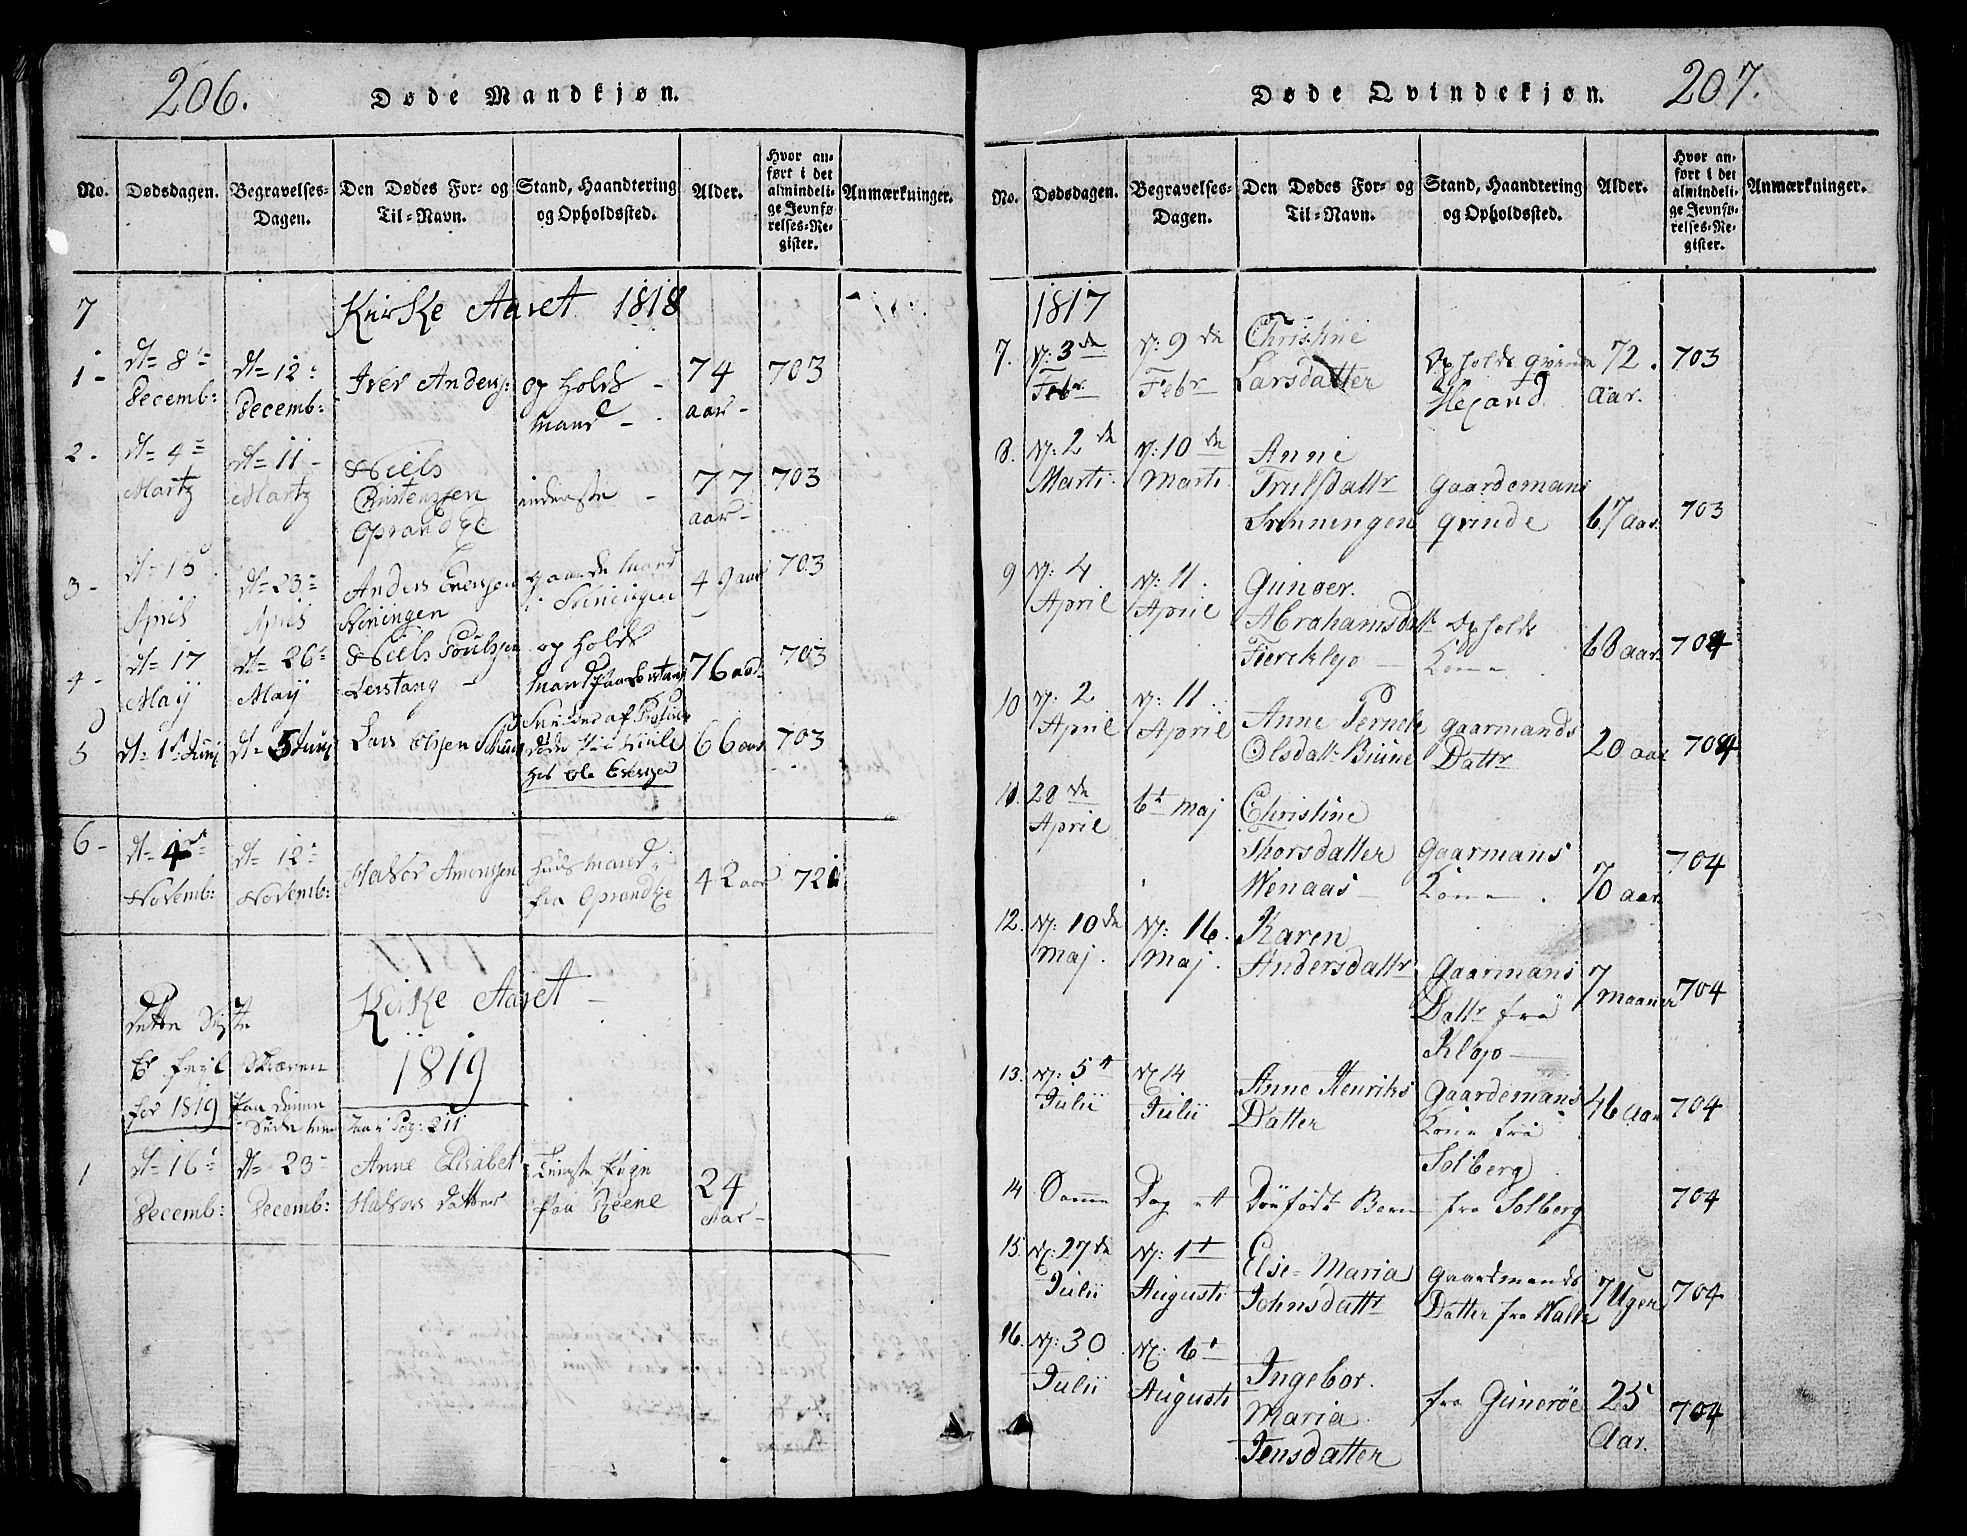 206.
Døde Mandkjøn.
No.
Dødsdagen.
Begravelses-
Dagen.
Den Dødes For- og
Til-Navn.
Stand, Haandtering
og Opholdssted.
Alder.
Hvor an-
ført i det
almindeli-
ge Jevnfø-
relses-Re-
gister.
Anmærkninger.
7
Kirke Aaret 1818
1-
dt= 8de
Decemb:
dt= 12te
Decemb:
Iver Anders:
op holds
mand -
74
aar-
703
2-
dt= 4=
Martz
dt= 11-
Martz
Niels
Christenssen
Oprandke
inderste -
77
aar-
703
3-
dt= 15
April
dt= 23=
April
Anders Eversen
Gaarde Mand
49 aar
703
4-
dt= 17
May
dt= 26
May
Niels
Lerstang -
op holds
mand paa Lerstang
76 aar
703
5
dt= 1st Junj
dt= 5 Junj
Lars Olssen
66 aar
703
6-
dt= 4
Novemb:
dt= 12=
Novemb:
Halvor
huus mand
fra Oprandke
42 aar
721
Kirke Aaret
1819
Dette Siste
Er feil Skreven
for 1819 Paa denne
Side
Pag: 211
1
dt= 16
Decemb:
dt= 23-
Decemb:
Anne Elisabet
Halvors datter
Tieneste Pige
paa
24
Aar-
207.
Døde Qvindekjøn.
No.
Dødsdagen.
Begravelses-
Dagen.
Den Dødes For- og
Til-Navn.
Stand, Haandtering
og Opholdssted.
Alder.
Hvor an-
ført i det
almindeli-
ge Jevnfø-
relses-Re-
gister.
Anmærkninger.
1817
7.
d: 3de
Febr
d: 9de
Febr
Christine
Larsdatter
Opholds qvinde
72.
Aar.
703
8.
d: 2de
Marti
d: 10de
Marti
Anne
Trulsdattr
Srinningen
Gaardemans
qvinde
67 Aar.
703
9
d: 4
April
d: 11.
April
Gunoer.
Abrahamsdattr
Opholds
Kone
68 aar.
704
10
d: 2
April
d: 11
April
Anne Pernele
Olsdattr Biune
gaarmands
Dattr
20 aar
704
11.
28de
April
6t Maj
Christine
Thorsdatter
Wenaas
Gaarmans
Kone
70 aar.
704
12.
d: 10de
Maj.
d: 16.
Maj.
Karen
Andersdattr
Gaarmans
Dattr fra
Klojo
7
maaner
704
13.
d: 5t
Julii
d: 14
Julii
Anne Henriks
Datter
Gaardemans
Kone fra
Solberg
46 Aar
704
14
Samme
Dag et
Dødfødt Barn
fra Solberg
704
15.
d: 27de
Julii
d: 1t
Augusti
Else-Maria
Johnsdattr
gaardmands
Datter fra Walle
7 Uger
704
16.
d: 30
Julii
d: 6t
Augusti
Ingebor.
Maria
Jensdatter
fra Gunerøe
25
Aar.
704